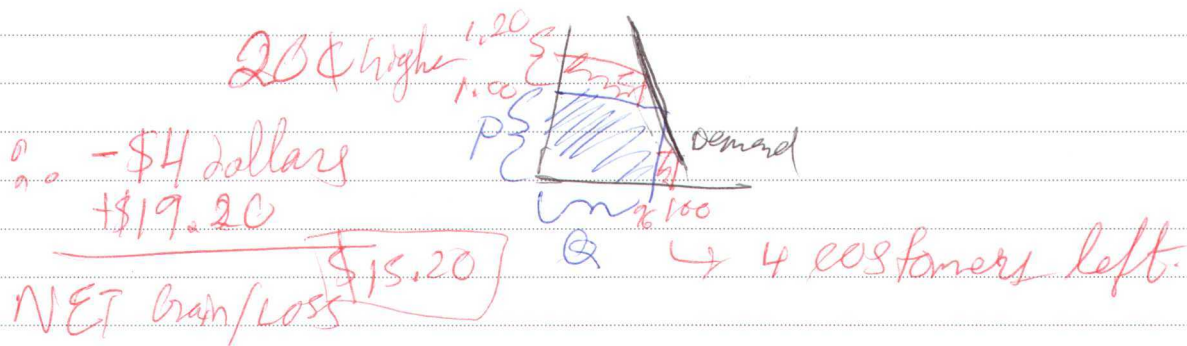 20¢ higher
1.20
1.00
P
Demand
∴ -$4 dollars
+$19.20
$15.20
NET Gain/Loss
96 100
Q
↳ 4 costomers left.